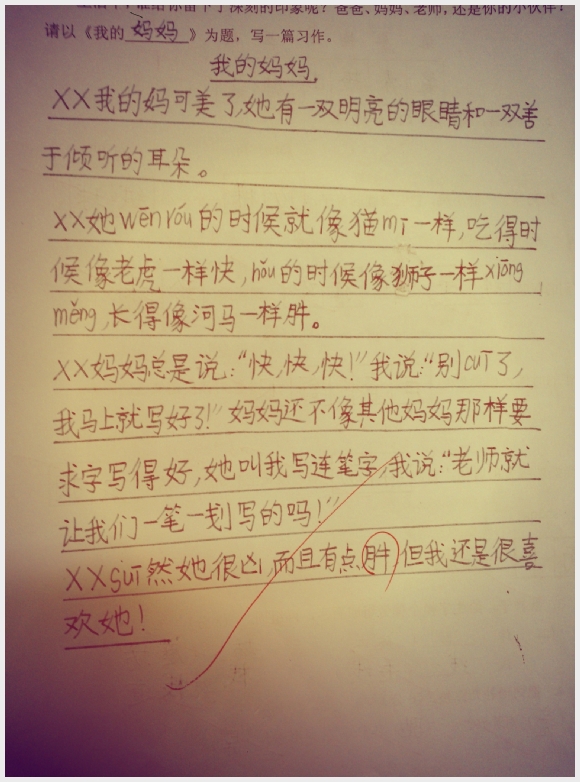 谁给你留下了深刻的印象呢？爸爸、妈妈、老师，还是你的小伙伴？
请以《我的 妈妈 》为题，写一篇习作。
我的妈妈.
XX我的妈可美了,她有一双明亮的眼睛和一双善
于倾听的耳朵。
XX她wēn róu的时候就像猫mī一样,吃得时
候像老虎一样快,hǒu的时候像狮子一样xióng
měng,长得像河马一样胖。
XX妈妈总是说:“快,快,快!”我说:“别cuī了,
我马上就写好了!”妈妈还不像其他妈妈那样要
求字写得好,她叫我写连笔字,我说:“老师就
让我们一笔一划写的吗!”
XXsuī然她很凶,而且有点胖,但我还是很喜
欢她!